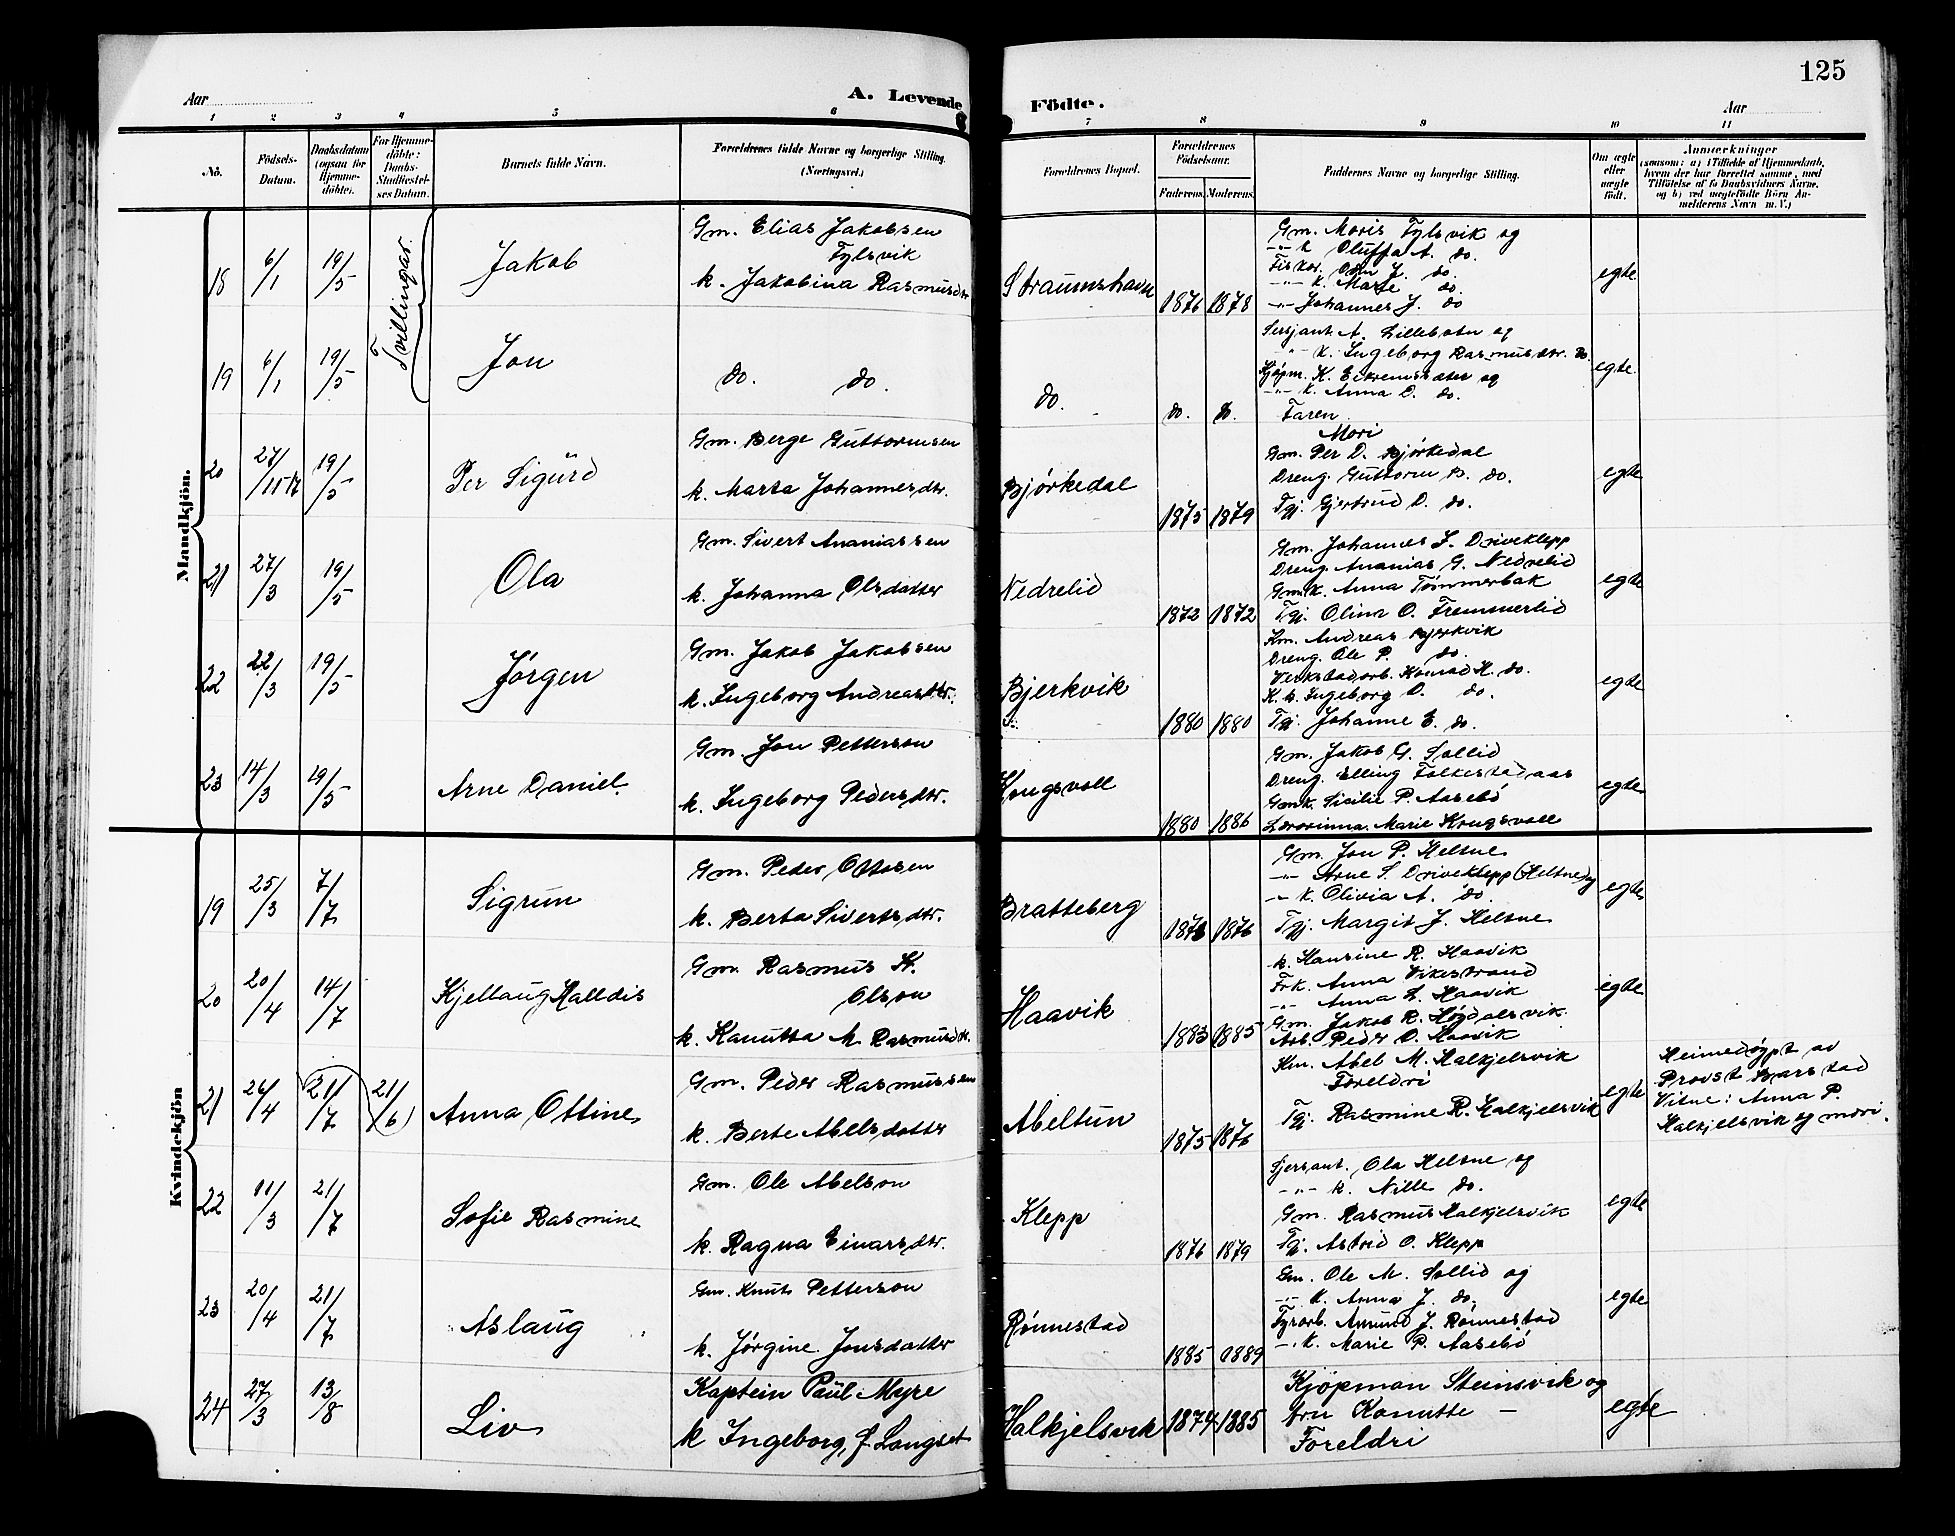 125
Aar
A. Levende
Födte.
Aar
1 2 3 4 5 6 7 8 9 10 11
No.
Födsels-Datum.
Daabsdatum (ogsaa for Hjemme-döbte).
For Hjemme-döbte: Daabs-Stadfæstel-ses Datum.
Barnets fulde Navn.
Forældrenes fulde Navne og borgerlige Stilling. (Næringsvei.)
Forældrenes Bopæl.
Forældrenes Födselsaar.
Faderens. Moderens.
Faddernes Navne og borgerlige Stilling.
Om ægte eller uægte født.
Anmærkninger
(saasom: a) i Tilfælde af Hjemmedaab, hvem der har forrettet samme, med Tilföielse af to Daabsvidners Navne, og b) ved uægtefödte Börn An-melderens Navn m. V.)
Mandkjön.
Tvillingar.
18 6/1 19/5 Jakob
Gm. Elias Jakobsen
Fylsvik
k. Jakobina Rasmusdtr
Straumshavn 1876 1878
Gm. Moris Fylsvik og
-"- k Oluffa A. do.
Fiskar. Odin J. do.
-"- k. Marie do.
-"- Johannes J. do
egte
19 6/1 19/5 Jon
do. do.
do. do. do.
Sersjant A. Lillebotn og
-"- k. Ingeborg Rasmusdtr. do.
Kjöpm. K. Eikremsæter og
-"- k. Anna D. do.
Faren
Mori
egte.
20 27/11-12 19/5 Per Sigurd
Gm. Berge Guttormsen
k. Marta Johannesdtr.
Bjørkedal 1875 1879
Gm. Per D. Bjørkedal
Dreng. Guttorm B. do.
Tgj. Gjertrud D. do.
egte
21 27/3 19/5 Ola
Gm. Sivert Ananiassen
k. Johanna Olsdatter
Nedrelid 1872 1872
Gm. Johannes S. Driveklepp
Dreng. Ananias G. Nedrelid
Gmk. Anna Tømmerbak
Tgj. Olina O. Fremmerlid
egte
22 22/3 19/5 Jørgen
Gm. Jakob Jakobsen
k. Ingeborg Andreasdtr.
Bjerkvik 1880 1880
Km. Andreas Bjerkvik
Dreng. Ole P. do.
Verkstadarb. Konrad K. do.
K. k. Ingeborg O. do.
Tgj. Johanne E. do.
egte
23 14/3 19/5 Arne Daniel.
Gm. Jon Petterson
k. Ingeborg Pedersdtr.
Haugsvoll 1880 1886
Gm. Jakob G. Sollid
Dreng. Elling Folkestadaas
Gmk. Sicilie P. Aasebö
Lærarinna. Marie Krugsvoll
egte
Kvindekjön
19 25/3 7/7 Sigrun
Gm. Peder Ottosen
k. Berta Sivertsdtr.
Bratteberg 1873 1876
Gm. Jon P. Heltne
-"- Arne S. Driveklepp (Heltne) og
-"- k. Olivia A. do.
Tgj. Margit J. Heltne
egte
20 20/4 14/7 Kjellaug Halldis
Gm. Rasmus K.
Olson
k. Kanutta M. Rasmusdtr.
Haavik 1883 1885
k. Hansine R. Haavik
Frk. Anna Vikestrand
-"- Anna L. Haavik
Gm. Jakob R. Høydalsvik
Arb. Peder O. Haavik
egte
21 26/4 21/7 21/6 Anna Ottine
Gm. Peder Rasmussen
k. Berte Abelsdatter
Abeltun 1875 1876
Km. Abel M. Halkjelsvik
Foreldri
Tgj. Rasmine R. Halkjelsvik
egte
Heimedöypt av
Provst Barstad
Vitne: Anna P.
Halkjelsvik og mori.
22 11/3 21/7 Sofie Rasmine
Gm. Ole Abelson
k. Ragna Einarsdtr.
Klepp 1876 1879
Sjersant. Ola Heltne og
-"- k. Nille do.
Gm. Rasmus Halkjelsvik
Tgj. Astrid O. Klepp
egte
23 20/4 21/7 Aslaug
Gm. Knut Petterson
k. Jørgine Jonsdatter
Rønnestad 1885 1889
Gm. Ole M. Sollid og
-"- k. Anna J. do.
Fyrarb. Amund J. Rønnestad
-"- k. Marie P. Aasebö
egte
24 27/3 13/8 Liv
Kaptein Paul Myre
k Ingeborg, f. Langset
Halkjelsvik 1874 1885
Kjøpman Steinsvik og
fru Kanutte –
Foreldri
egte